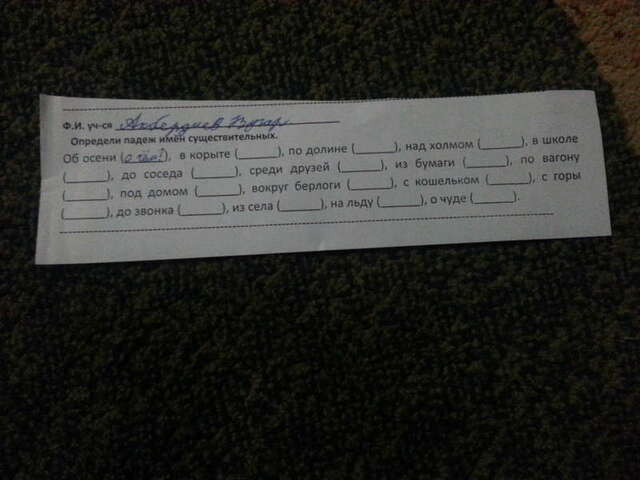 Ф.И. уч-ся
Определи падеж имён существительных.
Об осени (о чём?), в корыте (____), по долине (____), над холмом (____), в школе
(____), до соседа (____), среди друзей (____), из бумаги (____), по вагону
(____), под домом (____), вокруг берлоги (____), с кошельком (____), с горы
(____), до звонка (____), из села (____), на льду (____), о чуде (____).